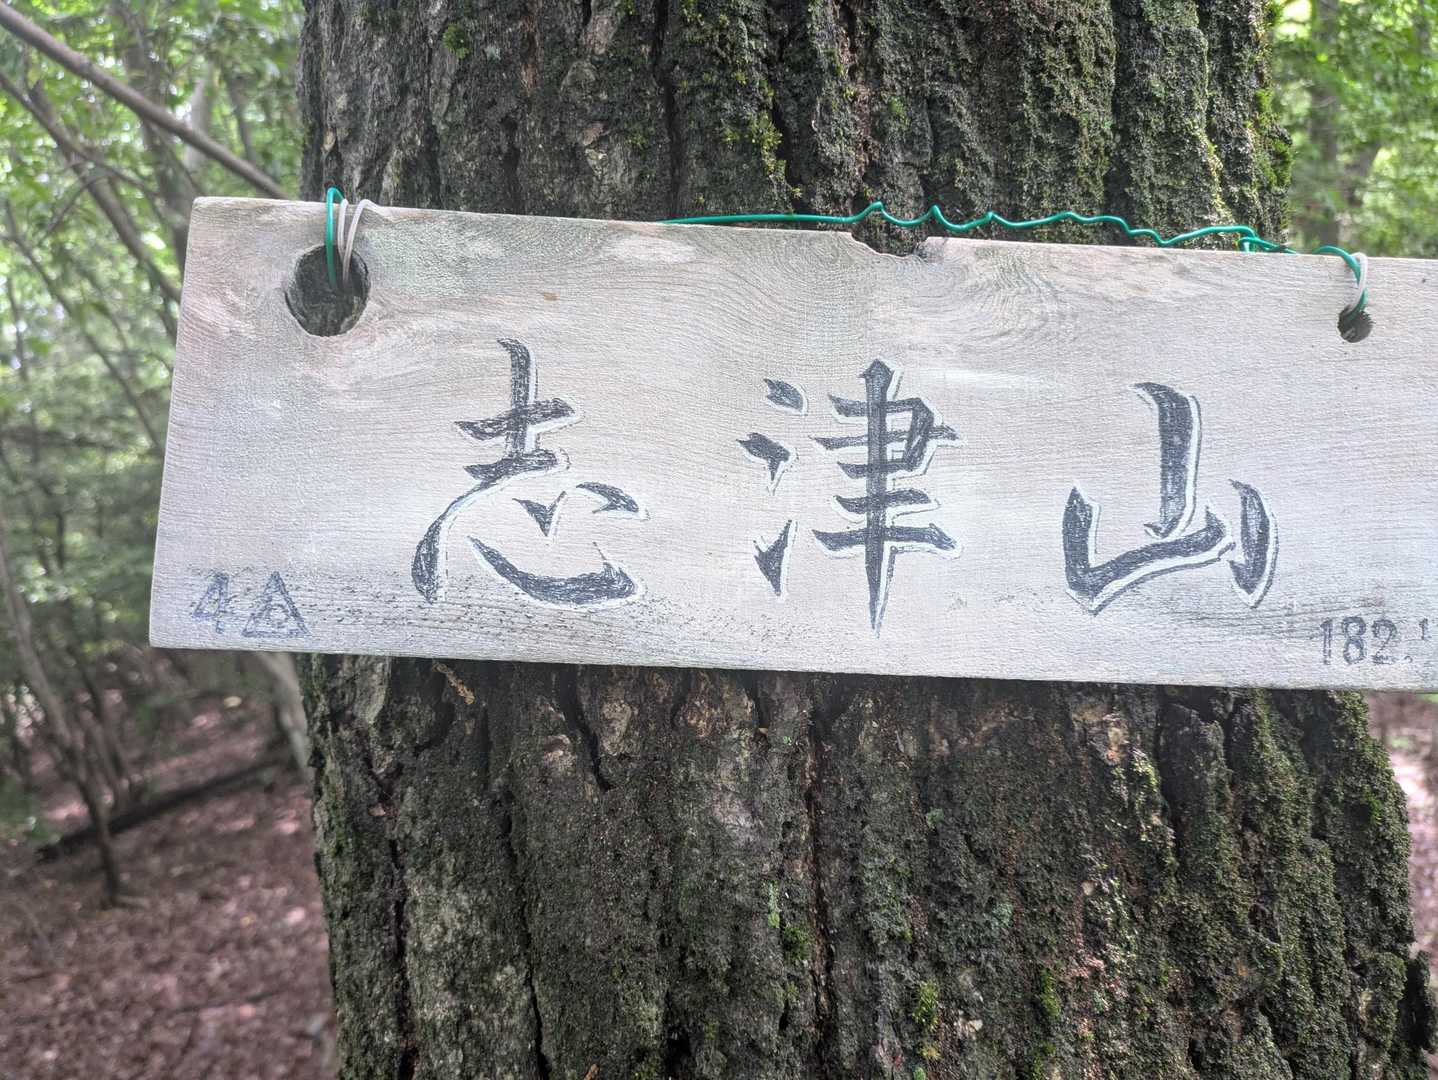 志津山
4△ 182.1